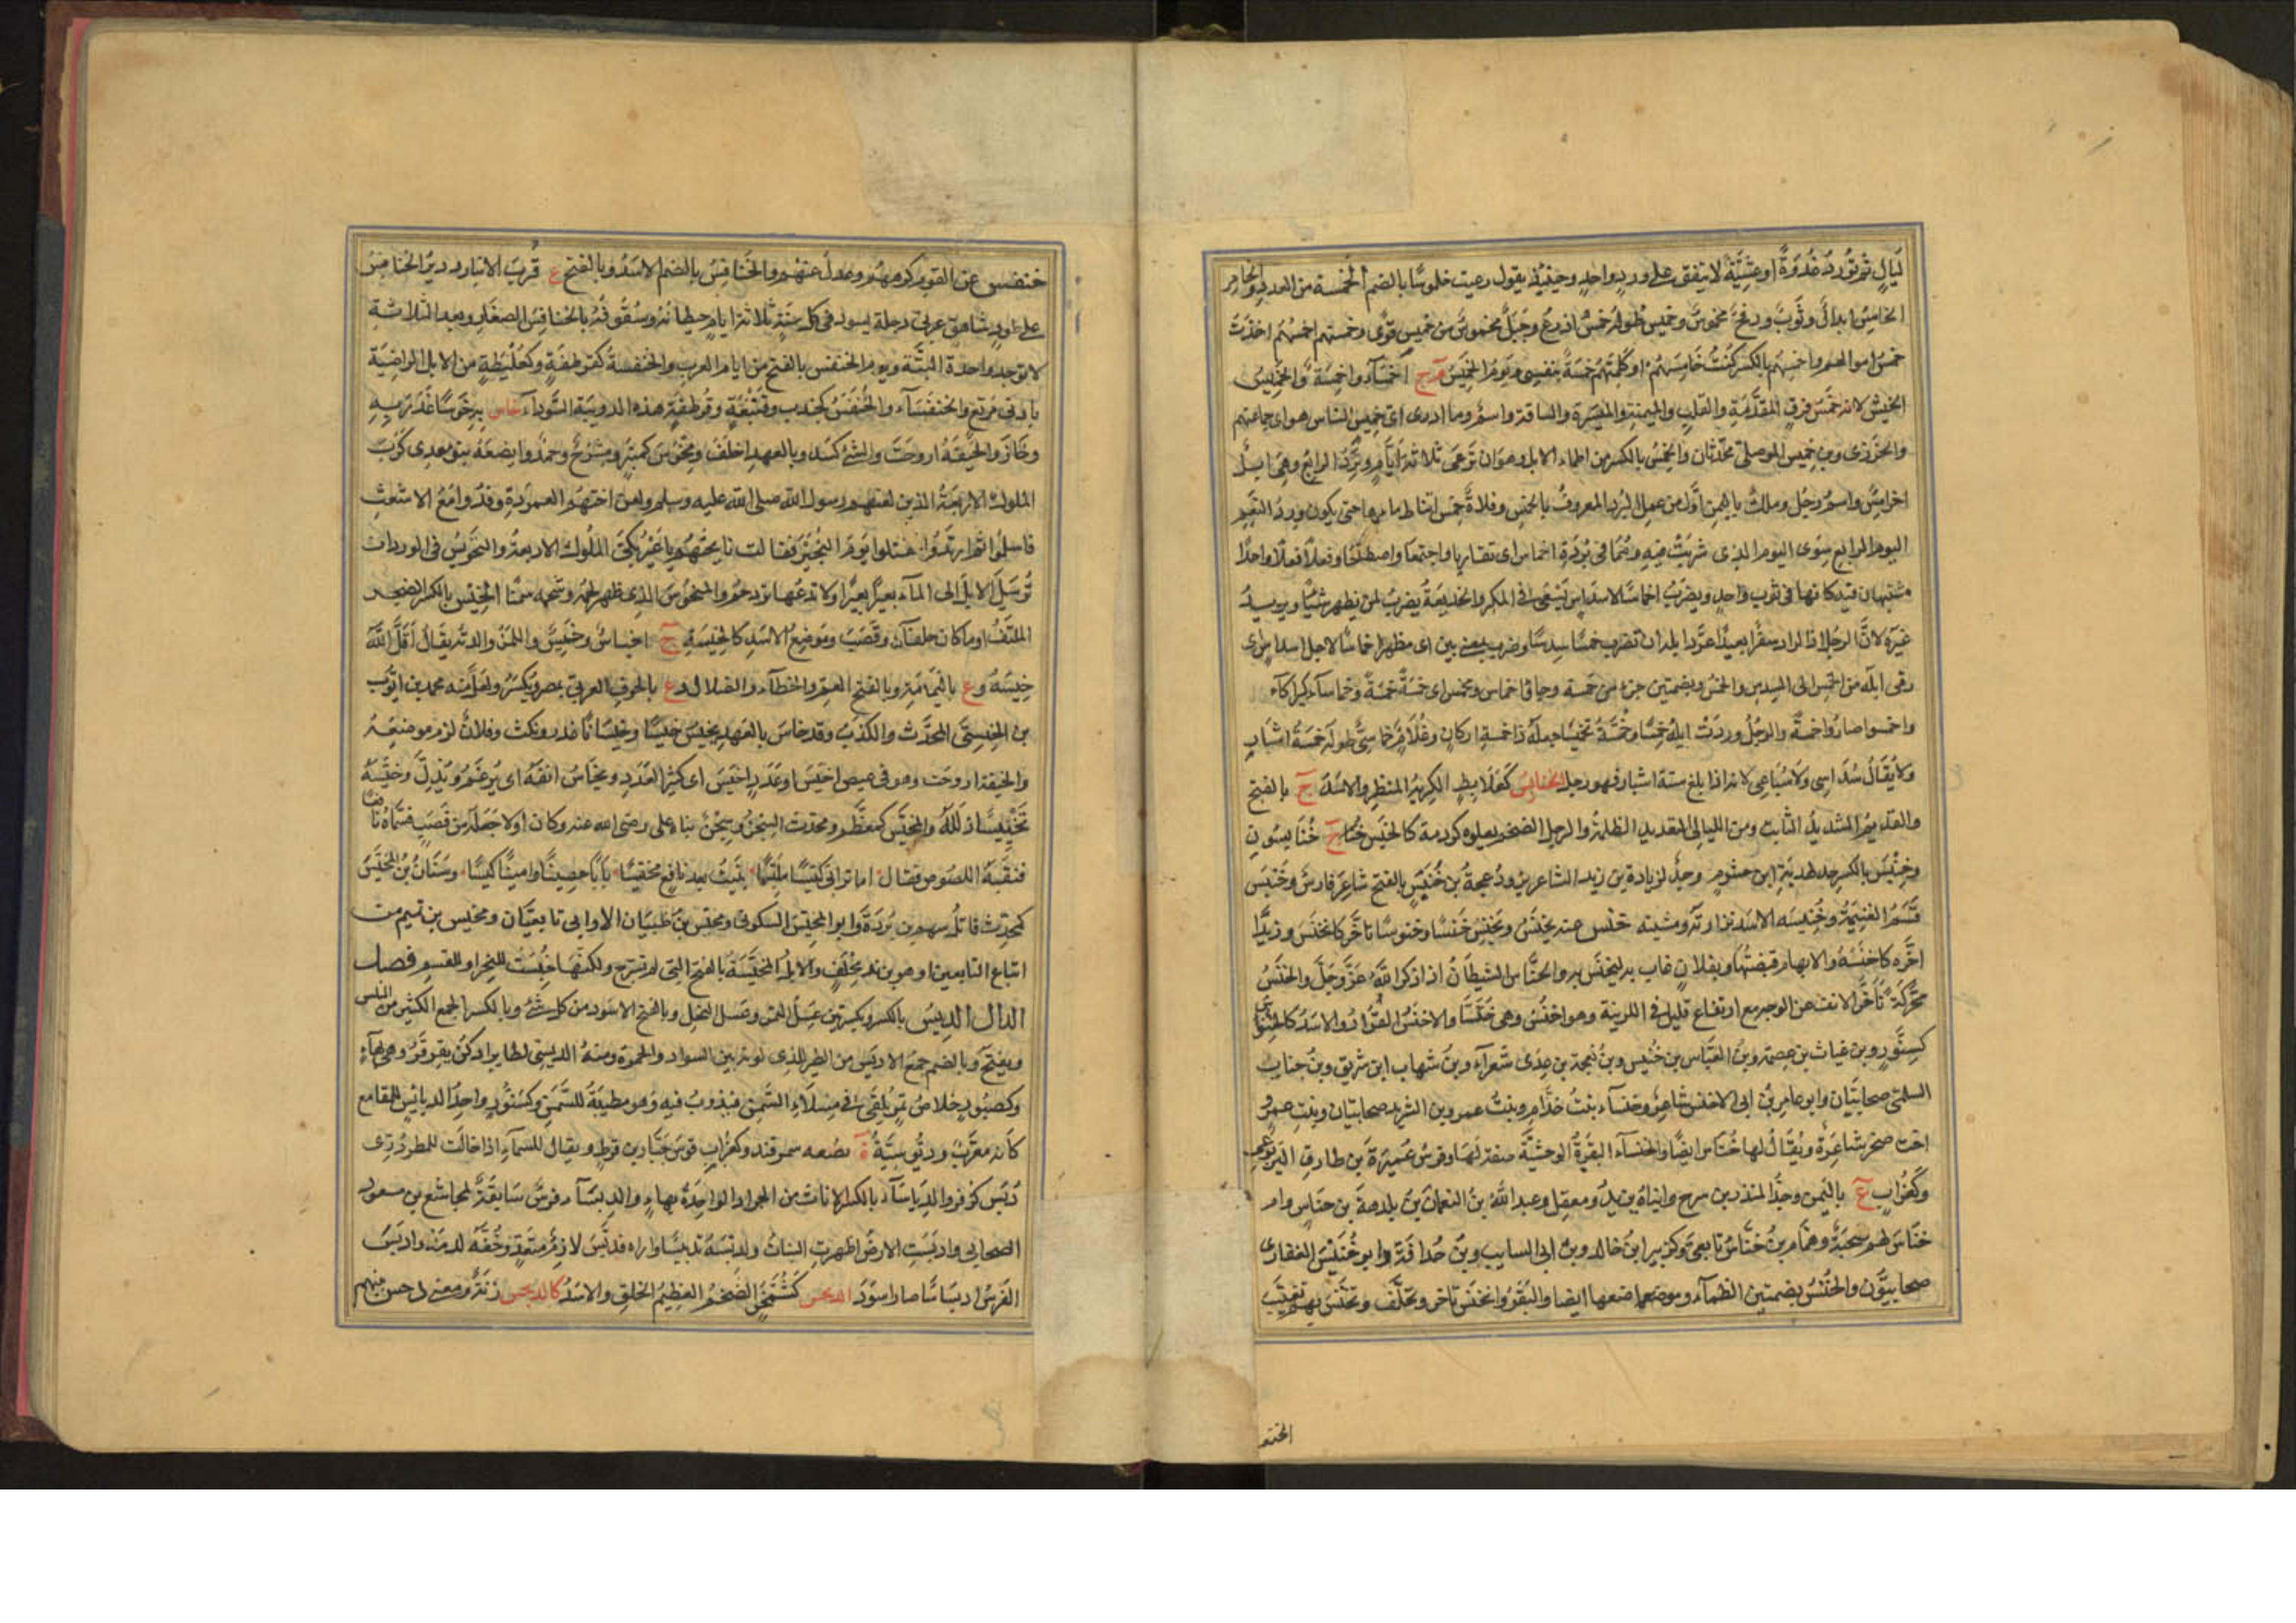 ليالٍ ثم تُورد غُدوةً او عشيّةً لا يتفق على وردٍ واحدٍ وحينئذٍ يقول رعيت خلموسًا بالضم الخمسة من العدد والخامى
الخامس ابدالٌ وثوبٌ ورمحٌ مخموسٌ وخميسٌ طوله خمسُ اذرعٍ وحَبلٌ مخموسٌ من خمسِ قُوًى وخمستهم اخمسُهُم اخذتُ
خمسَ اموالهم واخمِسُهم بالكسر كنتُ خامسهُم او كمّلتهم خمسةً بنفسى ويومُ الخميس مرج اخمساء واخمسة والخميسُ
الجيش لانه خمسُ فرقٍ المقدّمة والقلب والميمنة والميسرة والساقة واسمٌ وما ادرى اىّ خميس الناس هو اى جماعتهم
والحوزى وبن خميس الموصلى محدّثان والخمسُ بالكسر من اظماء الابل وهو ان ترعى ثلاثة ايّام وترد الرابع وهى ابل
خوامسٌ واسمُ رجُل وملكٌ باليمن اوّل من عمل البُرد المعروفُ بالخمس وفلاةٌ خمسٌ انتاط ماءها حتى يكون ورد النعم
اليوم الرابع سوى اليوم الذى شربت فيه وهُما فى بُردة اخماس اى تقاربا واجتمعا واصطلحا وفعلا فعلًا واحدًا
مشتبهان فيه كانهما فى ثوب واحد ويضربُ اخماسًا لاسداسٍ يَسعى فى المكر والخديعة يُضربُ لمن يُظهر شيئًا ويريدُ
غيرَه لانّ الرجل اذا اراد سفرًا بعيدًا عوّد ابله ان تشرب خمسًا سدسًا وضرب بمعنى بيّن اى يظهر اخماسًا لاجل اسداسٍ اى
رقى ابله من الخمس الى السدس والخمسُ وبضمتين جزءٌ من خمسة وجاؤا خماس ومخمس اى خمسةً خمسةً وخماساء كبراكاء
واخمسوا صاروا خمسةً والرجُلُ وردت ابلهُ خمسًا وخمّسهُ تخميسًا جعلهُ ذا خمسة اركان وغُلامٌ خماسىٌّ طوله خمسةُ اشبارٍ
ولا يُقالُ سُداسى ولا سُباعى لانه اذا بلغ ستة اشبار فهو رجل الخنابس كعُلابطٍ الكريه المنظر والاسدُ ج بالفتح
والقديم الشديد الثابت ومن الليالى الشديد الظلمة والرجل الضخم يعلوه كردمة كالخنبس خنا ج خُنابسون
وخِنْبس بالكسر جد لهدبة ابن خشرم وجدٌّ لزيادة بن زيد الشاعرين ودُعجةُ بن خُنبسٍ بالفتح شاعر فارس وخنبس
قسم الغنيمة وخنبسه الاسد ترارته ومشيته خنس عنه يخنس ويخنُسُ خنسًا وخنوسًا تاخّر كانخنس وزيدًا
اخّره كاخنسهُ والابهام قبضتها وبفلانٍ غاب به ليخنس به والخنّاس الشيطانُ اذا ذكر اللهُ عزّ وجلّ والخنسُ
محرّكةً تاخّر الانف عن الوجه مع ارتفاع قليل فى الارنبة وهو اخنس وهى خنساءُ والاخنسُ القُرادُ والاسدُ كالخنّوس
كسنّورٍ وبن غياث بن عصمة وبنُ العبّاس بن خُنيس وبنُ نعجة بن عدى شعراء وبنُ شهاب ابن شريق وبنُ جناب
السلمى صحابيان وابو عامر بن ابى الاخنس شاعرٌ وخنساء بنتُ خدامٍ وبنتُ عمرو بن الشريد صحابيتان وبنت عمرو
اخت صخر شاعرةٌ ويُقالُ لها خُناس ايضًا والخنساء البقرة الوحشيّةُ صفة لها وفرسُ عُميرةَ بن طارق اليربوعى
وكغُرابٍ ع باليمن وجدُّ المنذر بن سرح وابناهُ يزيدُ ومعقل وعبد اللهِ بنُ النعمان بن بلدمة بن خناس وام
خناس لهم صحبةٌ وهمّام بنُ خنّاس تابعىّ وكزبير ابن خالد وبن ابى السايب وبن حُذافة وابو خُنيسٍ الغفارى
صحابيّون والخُنّسُ بضمتين الظباء وموضعها ايضا والبقرُ وانخنس تاخر وتخلّف وتخنس بهم تغيّب
الخنفـ
خنفس عن القوم كرههم وعدل عنهم والخُنافِسُ بالضم الاسدُ وبالفتح ع قُرب الانبار ودير الخنافس
على طودٍ شاهقٍ غربىّ دجلة يسود فى كل سنةٍ ثلاثة ايام حيطانه وسُقُوفُهُ بالخنافس الصغار وبعد الثلاثة
لا توجد واحدة البتّة ويوم الخنفس بالفتح من ايام العرب والخنفسةُ كقرطفةٍ وكعُلبطةٍ من الابل الراضية
بادنى مرتع والخنفساء والخُنفَسُ كجندب وقنفعةٍ وقُرطفةٍ هذه الدويبة السّوداء خاس به خوسًا غدر به
وخانَ والجيفةُ اروحت والشئ كسد وبالعهد اخلف ومخوس كمنبرٍ ومشرحٌ وجمدٌ وابضعةُ بنو معدى كرب
الملوك الاربعةُ الذين لعنهم رسول الله صلى الله عليه وسلم ولعن اختهم العمرّدة وفدُوا مع الاشعث
فاسلموا ثم ارتدّوا فقتلوا يوم النجير فقالت نايحتهم يا عين بكى الملوك الاربعة والتخويسُ فى الورد ان
تُرسل الابل الى الماء بعيرًا بعيرًا ولا تدعها تزدحمُ والمتخوّسُ الذى ظهر لحمهُ وشحمه سمنًا الخيس بالكسر الشجر
الملتفُّ او ما كان حلفاءَ وقصبًا وموضعُ الاسد كالخيسة ج اخياسٌ وخيس واللبنُ والدرّ يقالُ اقلّ اللهُ
خيسه وع باليمامة وبالفتح الغم والخطاء والضلال وع بالحوف الغربى بمصر ويكسرُ ولعلّ منه محمد بن ايّوب
بن الخيسىّ المحدّث والكذب وقد خاس بالعهد يخيس خيسًا وخيسانًا غدر ونكث وفلانٌ لزم موضعهُ
والجيفة اروحت وهو فى عيص اخيس او عددٍ اخيس اى كثير العدد ويخاسُ انفهُ اى يُرغم ويُذلّ وخيّسهُ
تخييسًا ذلّلهُ والمخيّس كمعظّم ومحدّث السِّجنُ وسجنٌ بناه على رضى الله عنه وكان اولا جعله من قصب فسمّاه نافعًا
فنقبهُ اللصوص فقال اما ترانى كيّسًا مكيّسا بنيتُ بعد نافع مخيّسا بابًا حصينًا وامينًا كيّسا وسنان بنُ المخيّس
كمحدّث قاتلُ سهم بن بُردة وابو المخيّس السكونى ومخيّس بن ظبيان الاوابى تابعيّان ومخيس بن تميم من
اتباع التابعين او هو بزنة مجلّف والابلُ المخيّسةُ بالفتح التى لم تسرح ولكنّها خُيّست للنحر او للقسم فصل
الدال الدِبسُ بالكسر وبكسرتين عسل التمر وعسل النحل وبالفتح الاسود من كل شئ وبالكسر الجمع الكثير من الناس
ويفتح وبالضم جمع الادبس من الطير الذى لونه بين السواد والحمرة ومنهُ الدبسى لطاير ادكن يقرقرُ وهى بهاءٍ
وكصبُورٍ خلاصُ تمرٍ يلقى فى مسلاء السّمن فيذوبُ فيه وهو مطيبةٌ للسّمن وكسنّورٍ واحدُ الدبابيس للمقامع
كانه معرّبٌ ودبُوسيّةُ ة بصغد سمرقند وكغرابٍ فرس جبّار بن قُرطٍ ويقال للسماء اذا خالت للمطر دُرّى
دُبس كزُفر والدباساء بالكسر الاناث من الجراد الواحدة بهاءٍ والدبساء فرسٌ سابقةٌ لمجاشع بن مسعود
الصحابى وادبست الارضُ اظهرت النبات ودبّسهُ تدبيسًا واراه فدبّس لازمٌ متعدٍّ وخُفّهُ لدمهُ وادبسّ
الفرسُ ادبساسًا صار اسود الدبحس كشُمّخرٍ الضخمُ العظيم الخلق والاسد كالدبخس زنةً ومعنى دحس بينهم